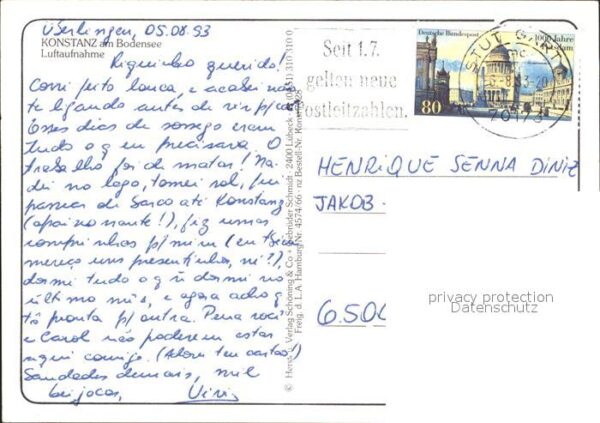 Überlingen, 05.08.93
KONSTANZ am Bodensee
Luftaufnahme
Riquinho querido!
Corri feito louca, e acabei não
te ligando antes de vir p/ cá.
Esses dias de sossego eram
tudo o q eu precisava. O
trabalho foi de matar! Na-
dei no lago, tomei sol, fui
passear de barco até Konstanz
(apaixonante!), fiz umas
comprinhas p/ mim (eu tb
mereço uns presentinhos, né?),
dormi tudo o q ñ dormi no
último mês, e agora acho q
tô pronta p/ outra. Pena você
e Carol não poderem estar
aqui comigo. (Adorei teu cartão!)
Saudades demais, mil
beijocas,
© Herst. u. Verlag Schöning & Co + Gebrüder Schmidt · 2400 Lübeck · (0451) 310 310 0
Freig. d. L.A. Hamburg Nr. 4574/66 · nz Bestell-Nr. Konst
Seit 1.7.
gelten neue
Postleitzahlen.
Deutsche Bundespost
1000 Jahre
Potsdam
80
STUTTGART
70173
HENRIQUE SENNA DINIZ
JAKOB-
6.500
privacy protection
Datenschutz